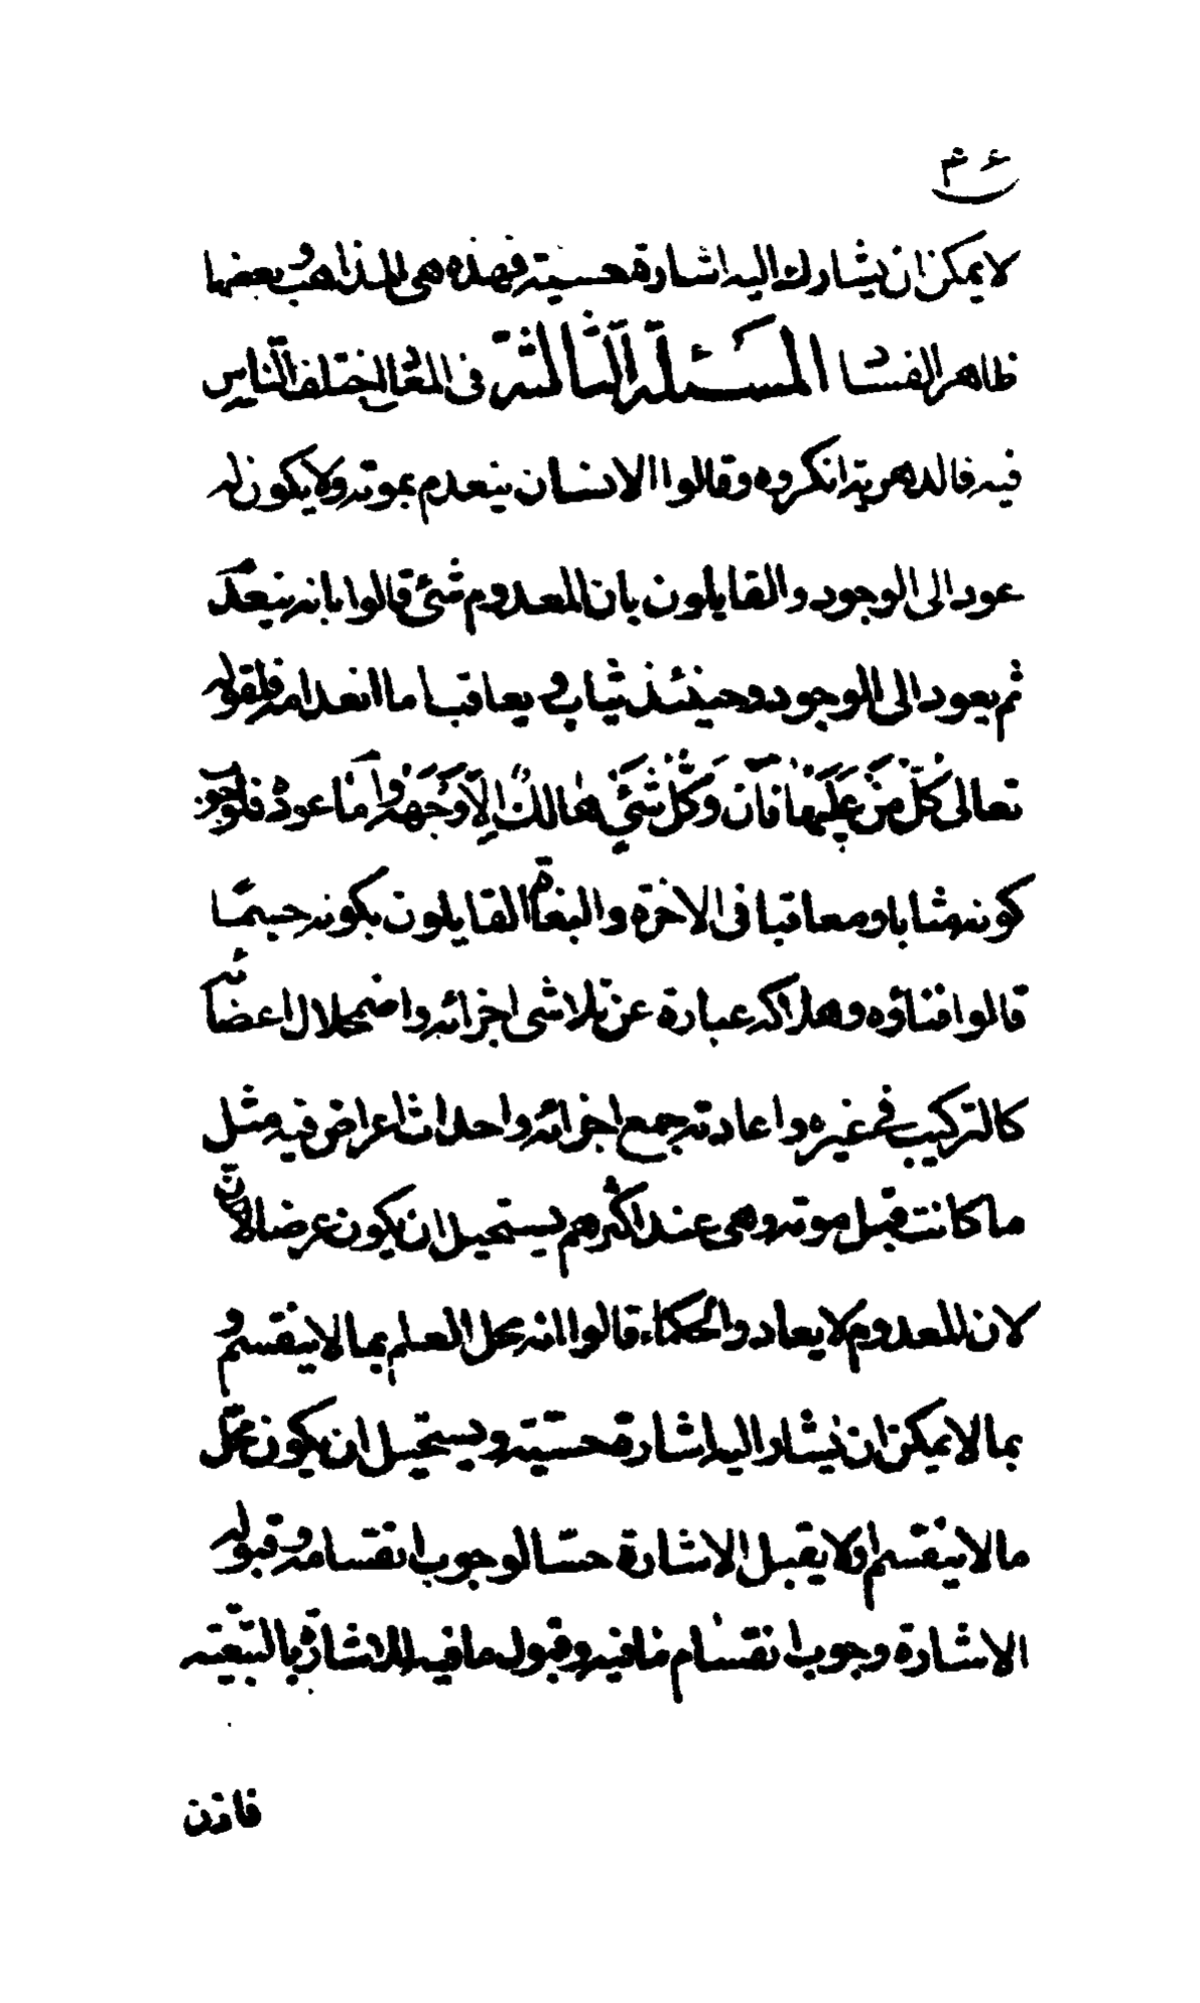 لا يمكن ان يشارك اليه اشارة حسية فهذه هى المذاهب وبعضها
ظاهر الفساد المسئلة الثالثة فى المعاد اختلف الناس
فيه فالدهرية انكروه وقالوا الانسان ينعدم بموته ولا يكون له
عود الى الوجود والقايلون بان المعدوم شئ قالوا بانه ينعدم
ثم يعود الى الوجود وحينئذ يثاب و يعاقب اما انعدامه فلقوله
تعالى كُلُّ مَنْ عَلَيْهَا فَانٍ وَكُلُّ شَئٍ هَالِكٌ اِلَّا وَجْهَهُ وَاَمّا عوده فلوجوب
كونه مثابا او معاقبا فى الاخرة والبغاهم القايلون بكونه جسمًا
قالوا فناؤه وهلاكه عبارة عن تلاشى اجزائه واضمحلال اعضائه
كالتركيب فى غيره واعادته جمع اجزائه واحداث اعراض فيه مثل
ما كانت قبل موته وهى عند اكثرهم يستحيل ان يكون عرضا لان
لان المعدوم لا يعاد والحكماء قالوا انه محل العلم بما لا ينقسم و
بما لا يمكن ان يشار اليه اشارة حسّية ويستحيل ان يكون محلّ
ما لا ينقسم او لا يقبل الاشارة حسّا لوجوب انقسامه وقبوله
الاشارة وجوب انقسام ما فيه وقبول ما فيه للاشارة بالتبعيّة
فاذن